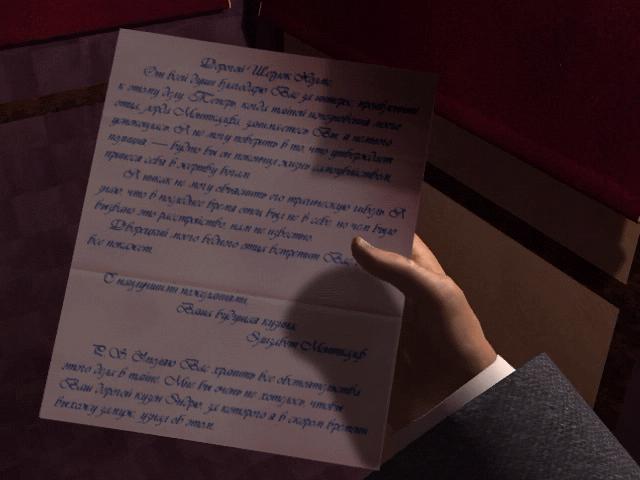 Дорогой Шерлок Холмс
От всей души благодарю Вас за интерес, проявленный
к этому делу. Теперь, когда тайной исчезновения моего
отца, лорда Монтклифа, занимаетесь Вы, я немного
успокоилась. Я не могу поверить в то, что утверждает
полиция — будто бы он покончил жизнь самоубийством,
принеся себя в жертву богам.
Я никак не могу объяснить его трагическую гибель. Я
знаю, что в последнее время отец был не в себе, но чем было
вызвано это расстройство, нам не известно.
Дворецкий моего бедного отца встретит Вас
все покажет.
С наилучшими пожеланиями,
Ваша будущая кузина,
Элизабет Монтклиф
P. S. Умоляю Вас хранить все обстоятельства
этого дела в тайне. Мне бы очень не хотелось, чтобы
Ваш дорогой кузен Эндрю, за которого я в скором времени
выхожу замуж, узнал об этом.